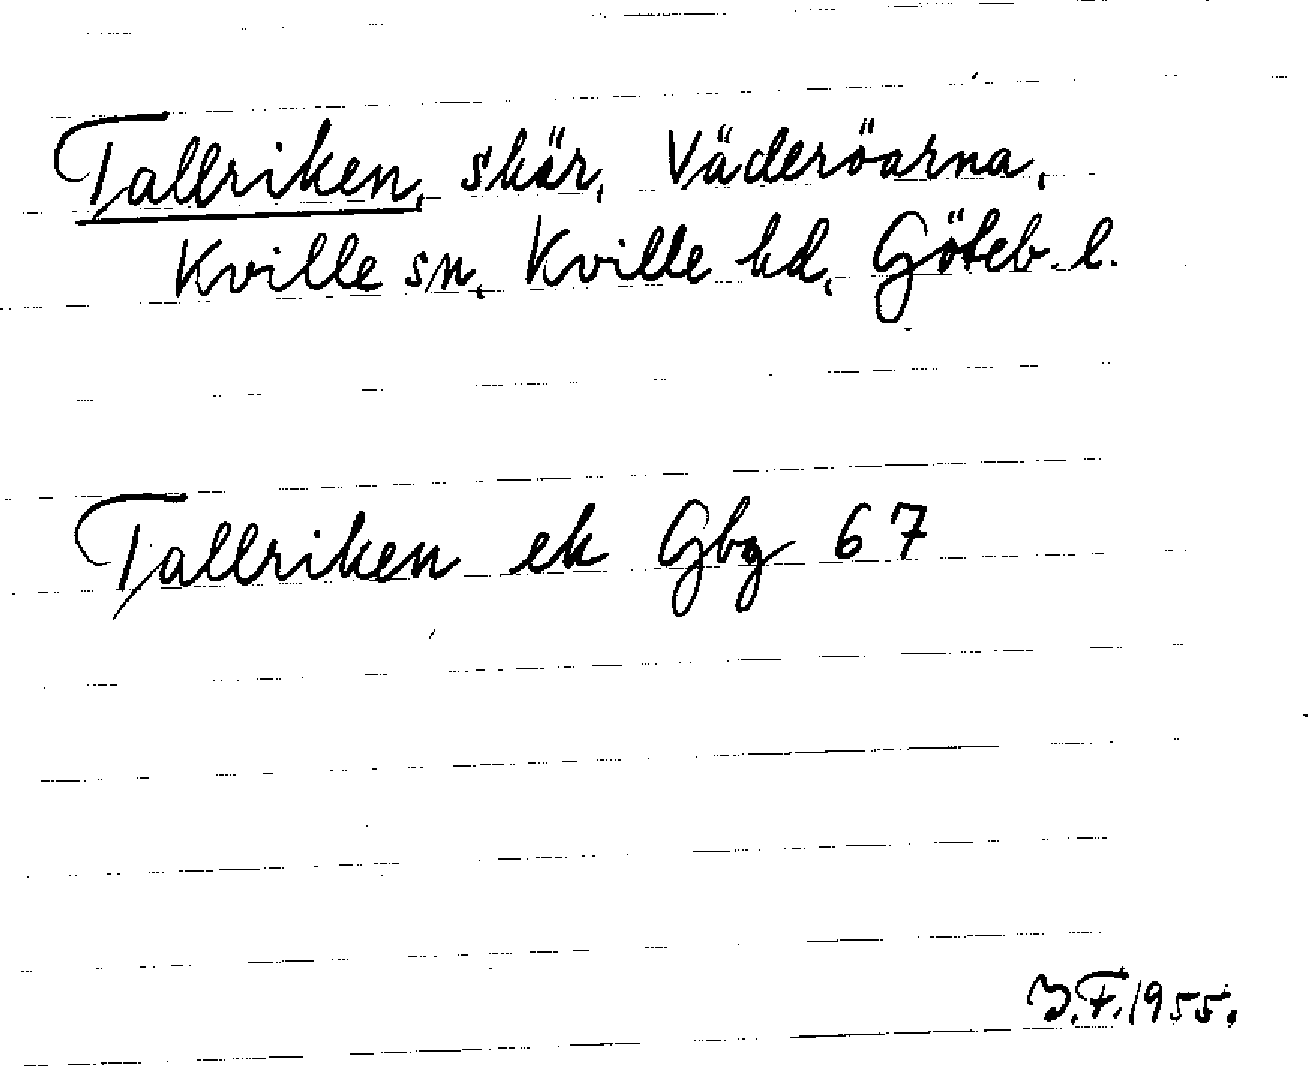 Tallriken, skär, Väderöarna,
Kville sn, Kville hd, Göteb. l.
Tallriken ek Gbg 67
F. 1955.